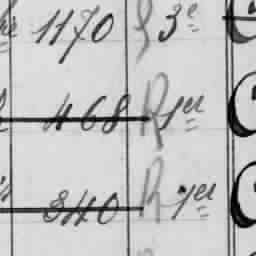 1170 3e
468 R 1er
840 R 1er